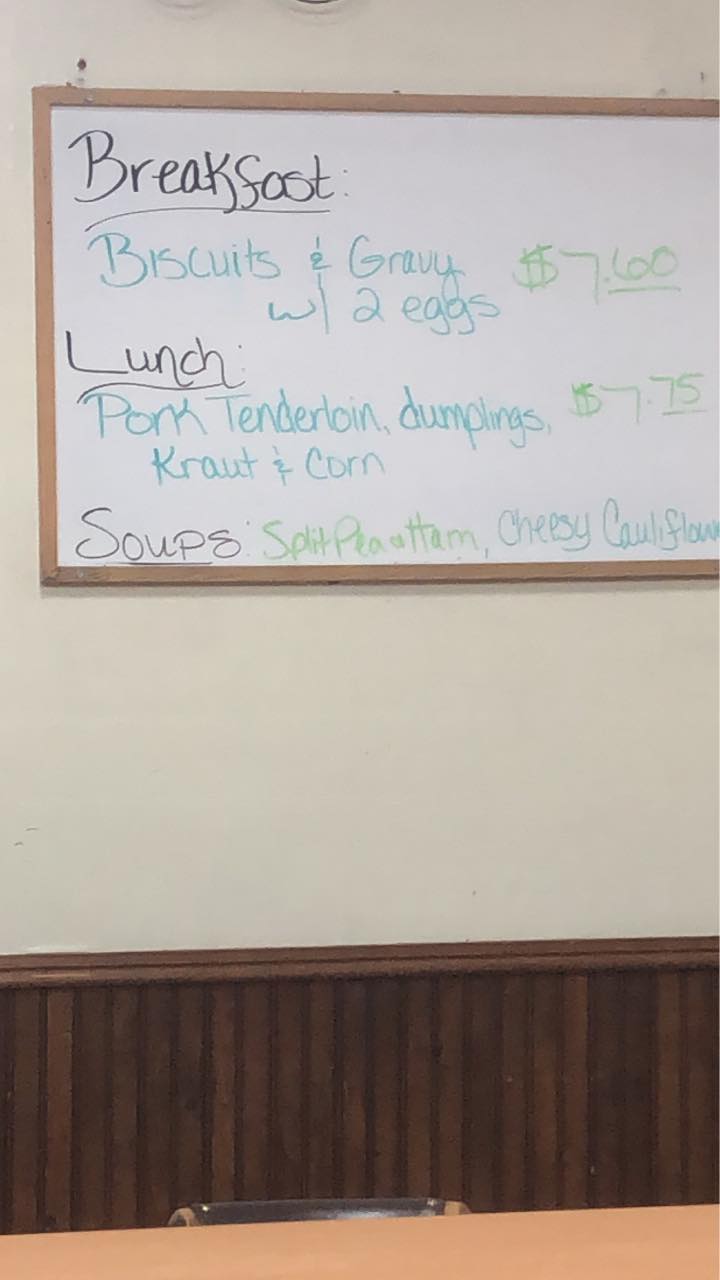 Breakfast:
Biscuits & Gravy $7.60
w/ 2 eggs
Lunch:
Pork Tenderloin, dumplings, $7.75
Kraut & Corn
Soups: Split Pea & Ham, Cheesy